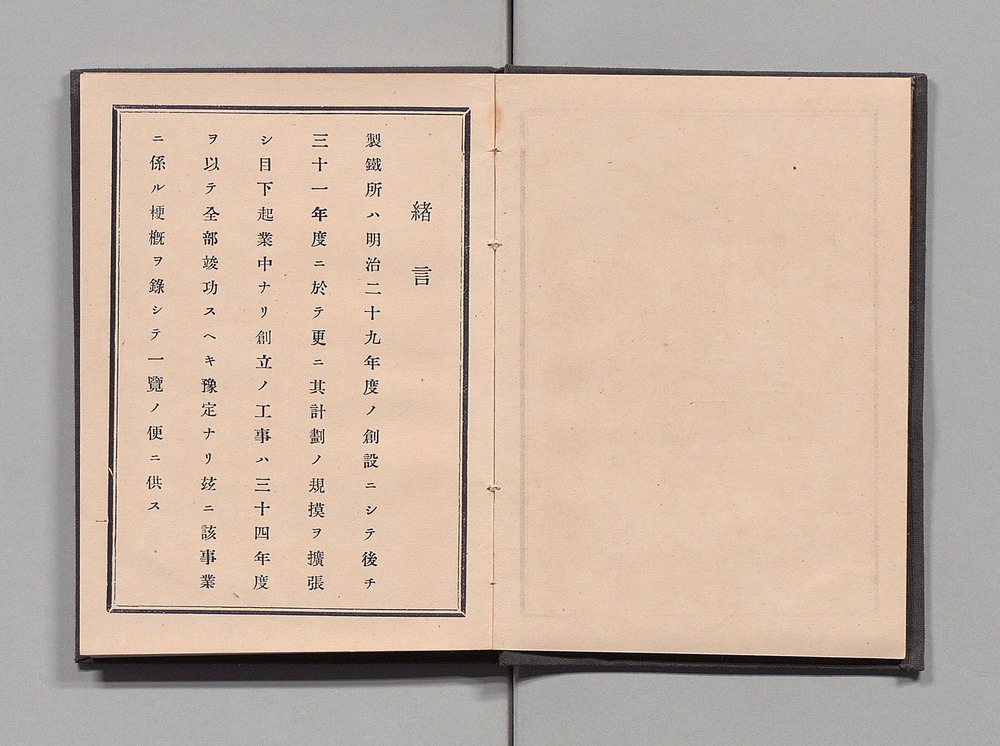 緒言
製鐵所ハ明治二十九年度ノ創設ニシテ後チ
三十一年度ニ於テ更ニ其計劃ノ規摸ヲ擴張
シ目下起業中ナリ創立ノ工事ハ三十四年度
ヲ以テ全部竣功スヘキ豫定ナリ玆ニ該事業
ニ係ル梗槪ヲ錄シテ一覽ノ便ニ供ス
一